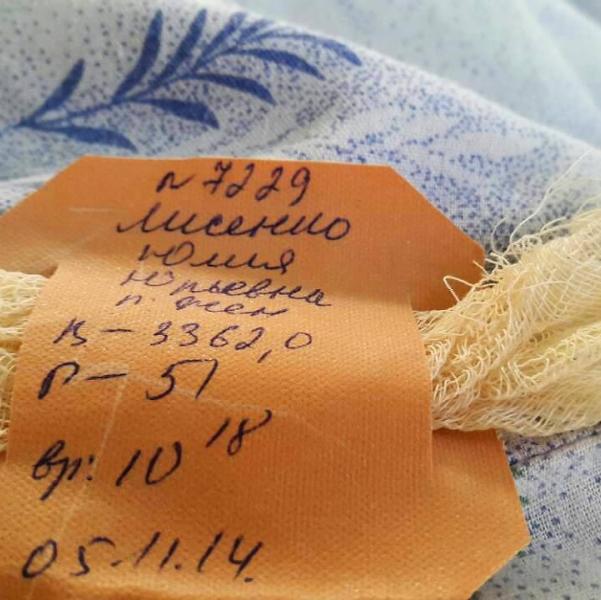 № 7229
Лисенко
Юлия
Юрьевна
п. жен
В – 3362,0
Р – 51
вр: 10 18
05.11.14.